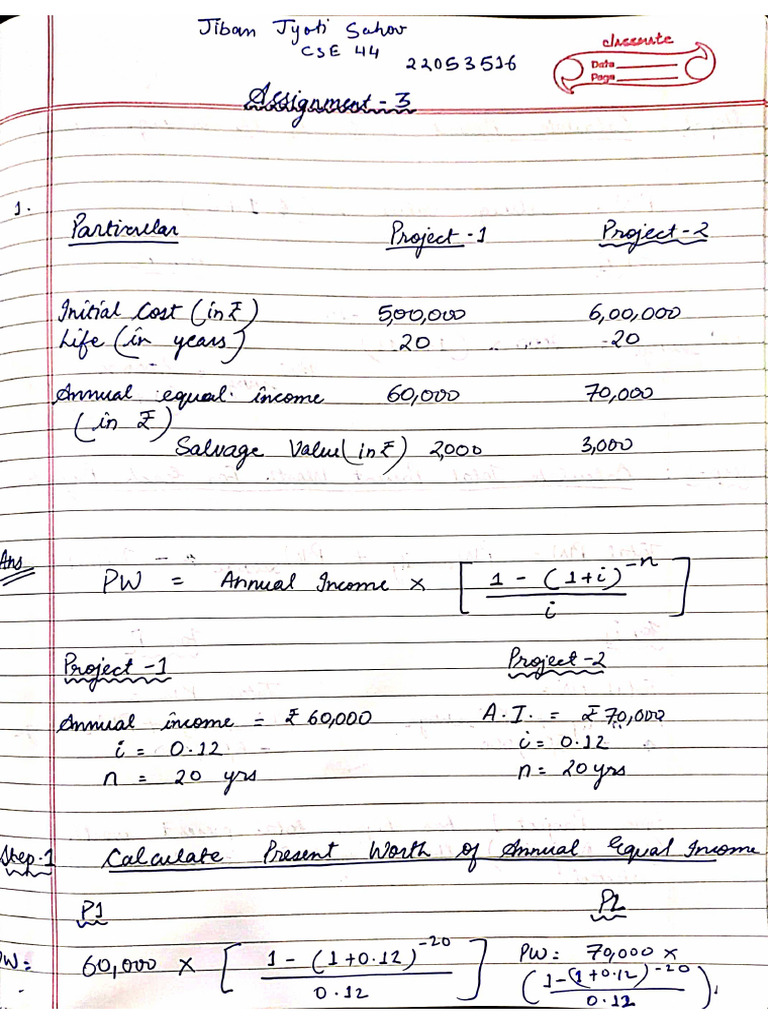 Jiban Jyoti Sahoo
CSE 44
22053516
classmate
Date
Page
Assignment - 3
1.
Particular Project - 1 Project - 2
Initial Cost (in ₹) 5,00,000 6,00,000
Life (in years) 20 20
Annual equal income 60,000 70,000
(in ₹)
Salvage Value (in ₹) 2,000 3,000
Ans
PW = Annual Income × [ 1 - (1+i)^-n / i ]
Project - 1 Project - 2
Annual income = ₹ 60,000 A.I. = ₹ 70,000
i = 0.12 i = 0.12
n = 20 yrs n = 20 yrs
Step-1 Calculate Present Worth of Annual Equal Income
P1 P2
PW = 60,000 × [ 1 - (1+0.12)^-20 / 0.12 ] PW: 70,000 ×
( 1-(1+0.12)^-20 / 0.12 )